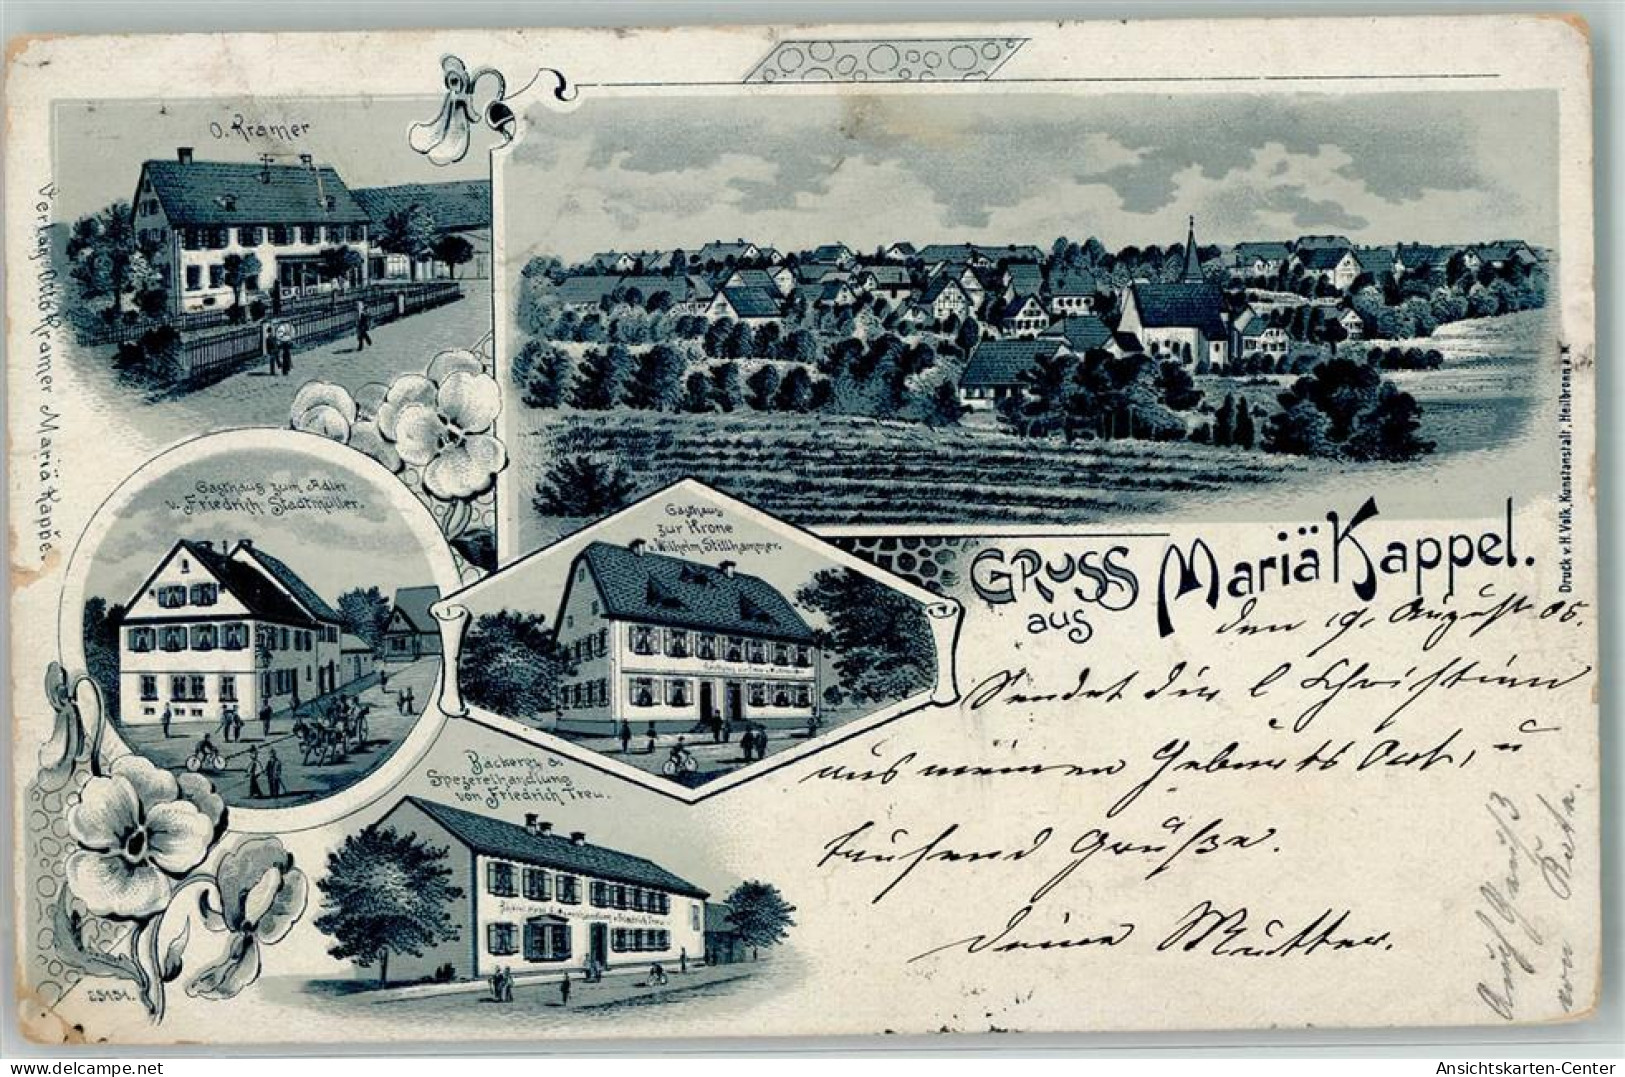 O. Kramer
Verlag Otto Kramer Mariä Kappel.
Gasthaus zum Adler
v. Friedrich Stadtmüller.
Gasthaus
zur Krone
v. Wilhelm Stillhammer.
Bäckerei &
Spezereihandlung
von Friedrich Treu.
25191.
Gruss
aus
Mariä Kappel.
Druck v. H. Volk, Kunstanstalt, Heilbronn a. N.
den 19. August 05.
Sendet dir l Christine
aus meinem Geburts Ort, u
tausend Grüße.
deine Mutter.
Auch Gruß
von
www.delcampe.net
Ansichtskarten-Center